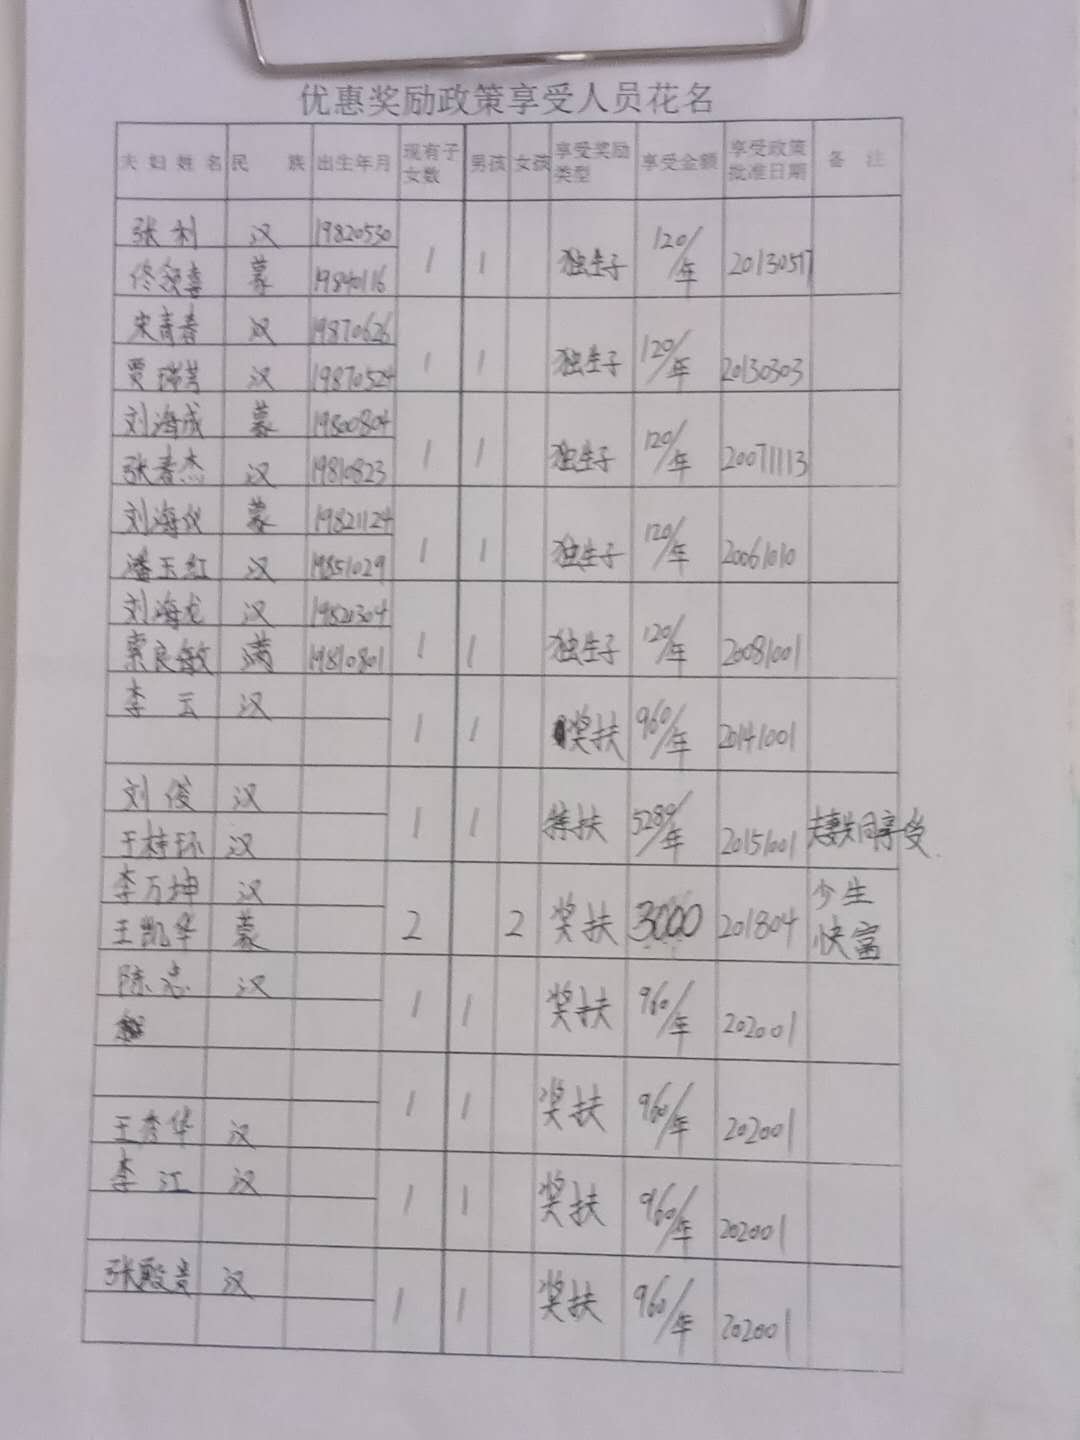 优惠奖励政策享受人员花名
夫妇姓名 民族 出生年月 现有子女数 男孩 女孩 享受奖励类型 享受金额 享受政策批准日期 备注
张利 汉 19820530 1 1 独生子 120/年 20130517
佟领喜 蒙 19840116
宋青春 汉 19870626 1 1 独生子 120/年 20130303
贾瑞芳 汉 19870524
刘海成 蒙 19800804 1 1 独生子 120/年 20071113
张春杰 汉 19810823
刘海仪 蒙 19821124 1 1 独生子 120/年 20061010
潘玉红 汉 19851029
刘海龙 汉 19820304 1 1 独生子 120/年 20081001
索良敏 满 19810801
李云 汉 1 1 奖扶 960/年 20141001
刘俊 汉 1 1 特扶 5280/年 20151001 夫妻共同享受
王桂环 汉
李万坤 汉 2 2 奖扶 3000 201804 少生快富
王凯华 蒙
陈志 汉 1 1 奖扶 960/年 202001
1 1 奖扶 960/年 202001
王秀华 汉
李江 汉 1 1 奖扶 960/年 202001
张殿贵 汉 1 1 奖扶 960/年 202001